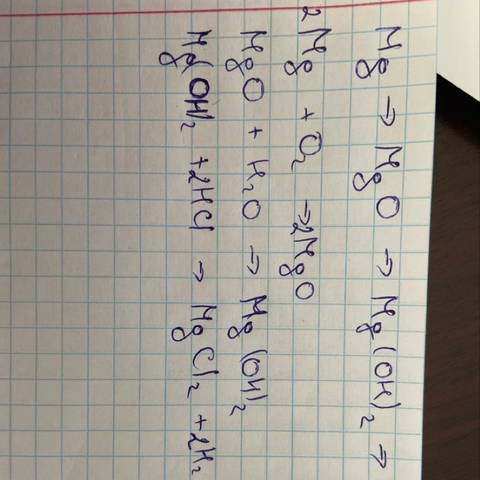 Mg → MgO → Mg(OH)₂ →
2Mg + O₂ → 2MgO
MgO + H₂O → Mg(OH)₂
Mg(OH₂ + 2HCl → MgCl₂ + 2H₂